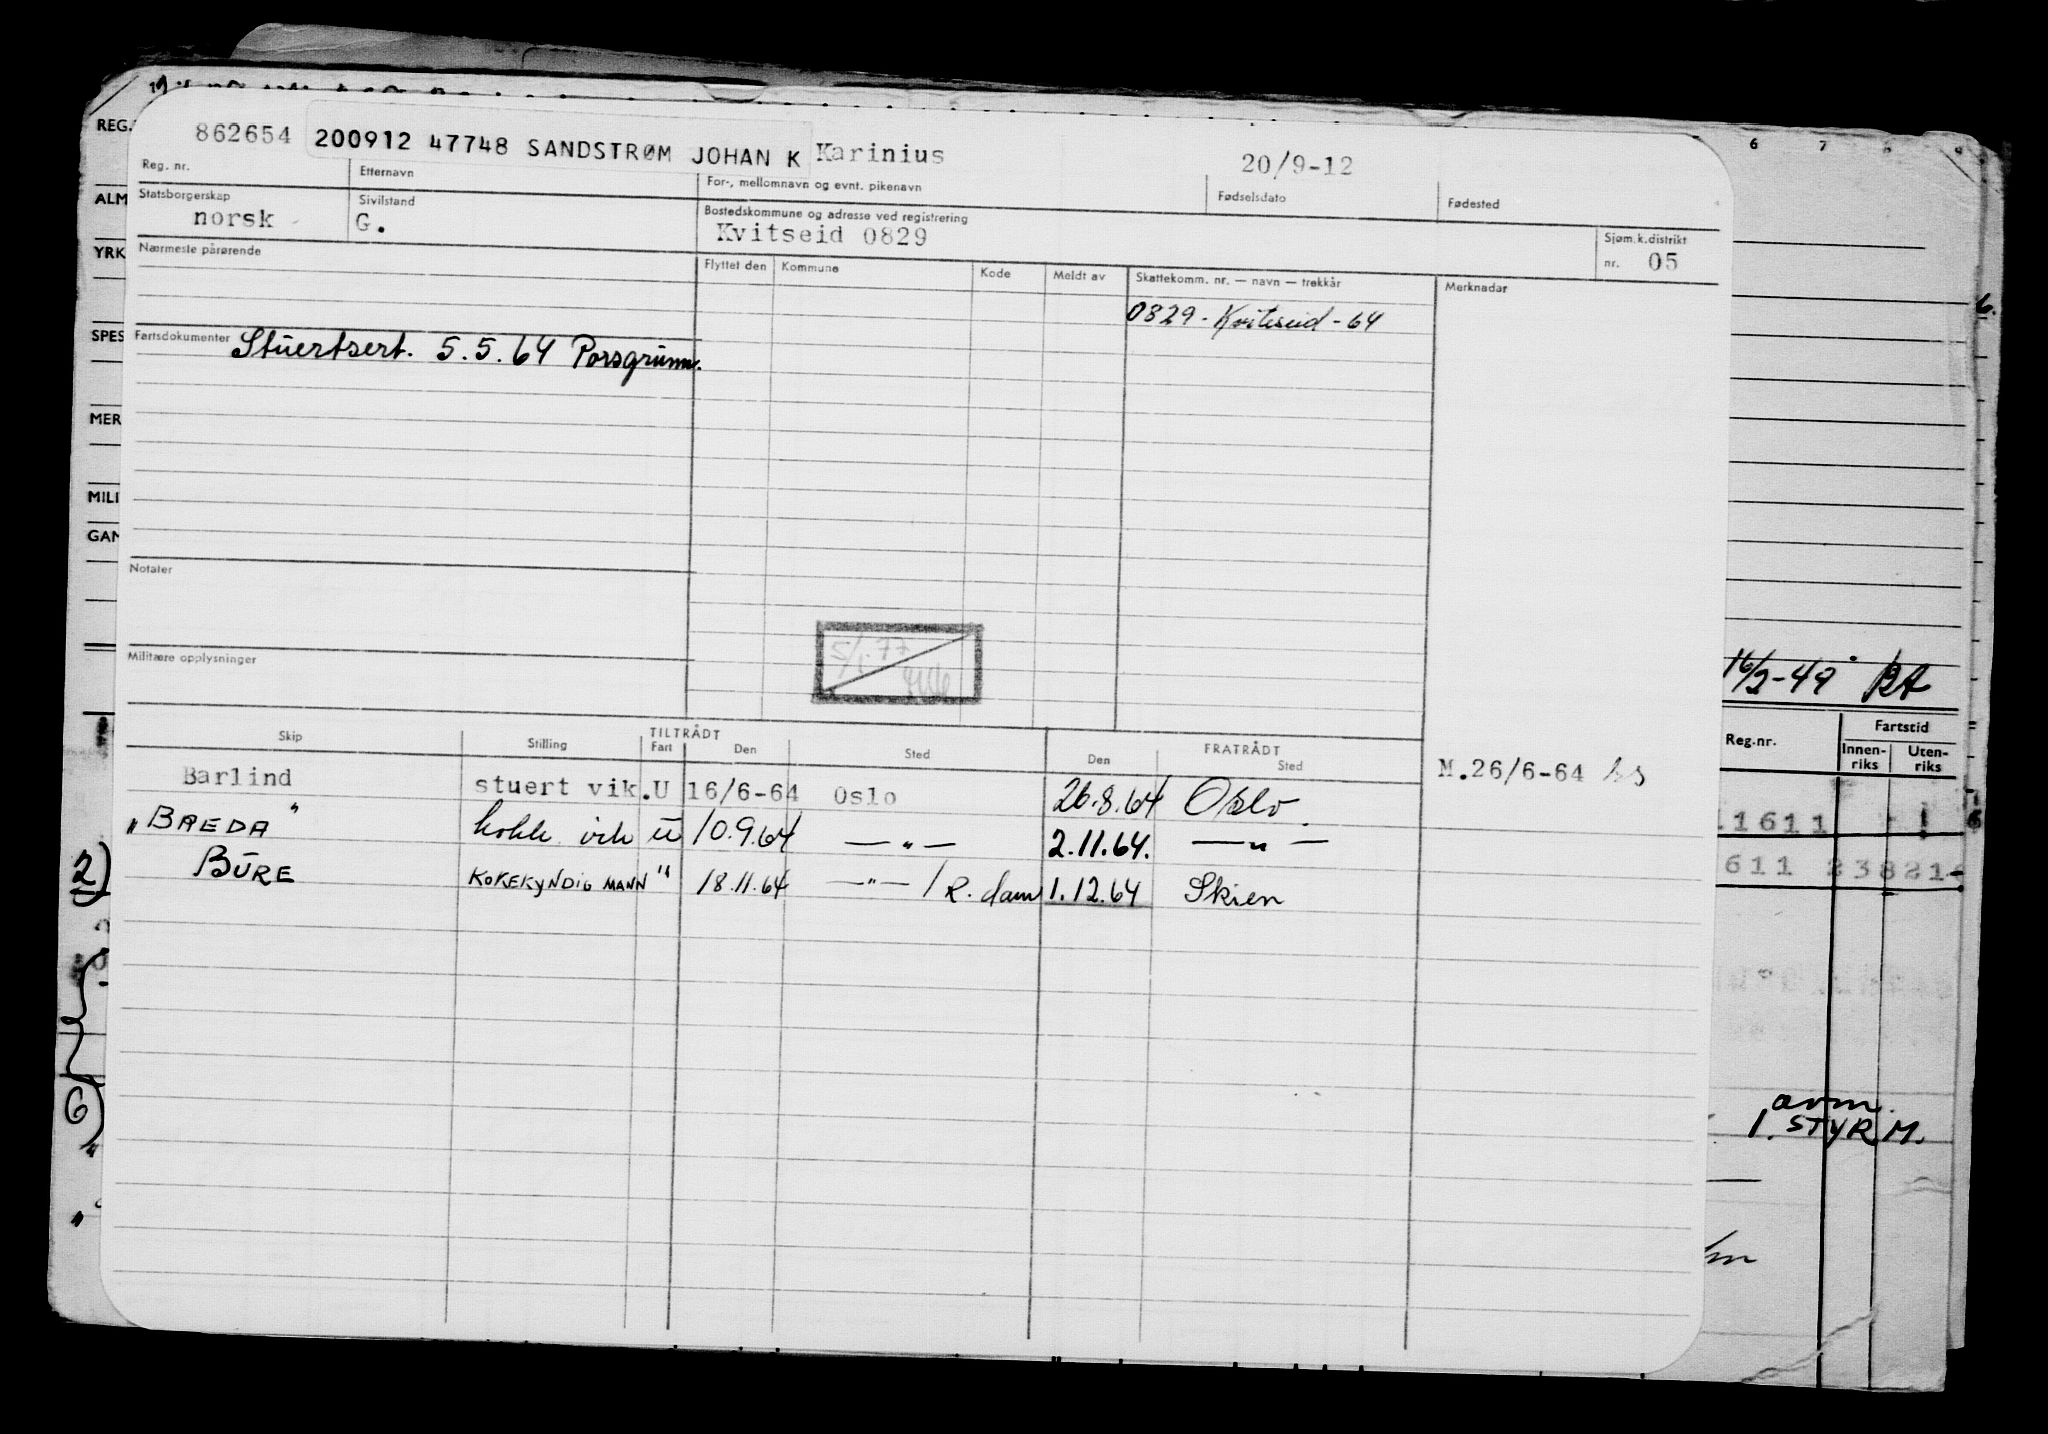 862654 200912 47748 SANDSTRØM JOHAN K Karinius 20/9-12
Reg. nr. Etternavn For-, mellomnavn og evnt. pikenavn Fødselsdato Fødested
Statsborgerskap Sivilstand Bostedskommune og adresse ved registrering Sjøm.k.distrikt
norsk G. Kvitseid 0829 nr. 05
Nærmeste pårørende Flyttet den Kommune Kode Meldt av Skattekomm. nr. — navn — trekkår Merknader
0829 - Kviteseid - 64
Fartsdokumenter Stuertsert. 5.5.64 Porsgrunn.
Notater
5/1-77
Militære opplysninger
TILTRÅDT FRATRÅDT
Skip Stilling Fart Den Sted Den Sted
Barlind stuert vik. U 16/6-64 Oslo 26.8.64 Oslo. M.26/6-64
"BREDA" kokk vik U 10.9.64 — " — 2.11.64. — " —
BURE KOKEKYNDIG MANN " 18.11.64 — " — / R.dam 1.12.64 Skien
REG.
ALM
YRK
SPES
MER
MILI
GAN
2)
6)
6 7 8 9
6.
16/2-49 BA
Reg.nr. Fartstid
Innen-
riks Uten-
riks
1611
611 23821
avm.
1. STYRM.